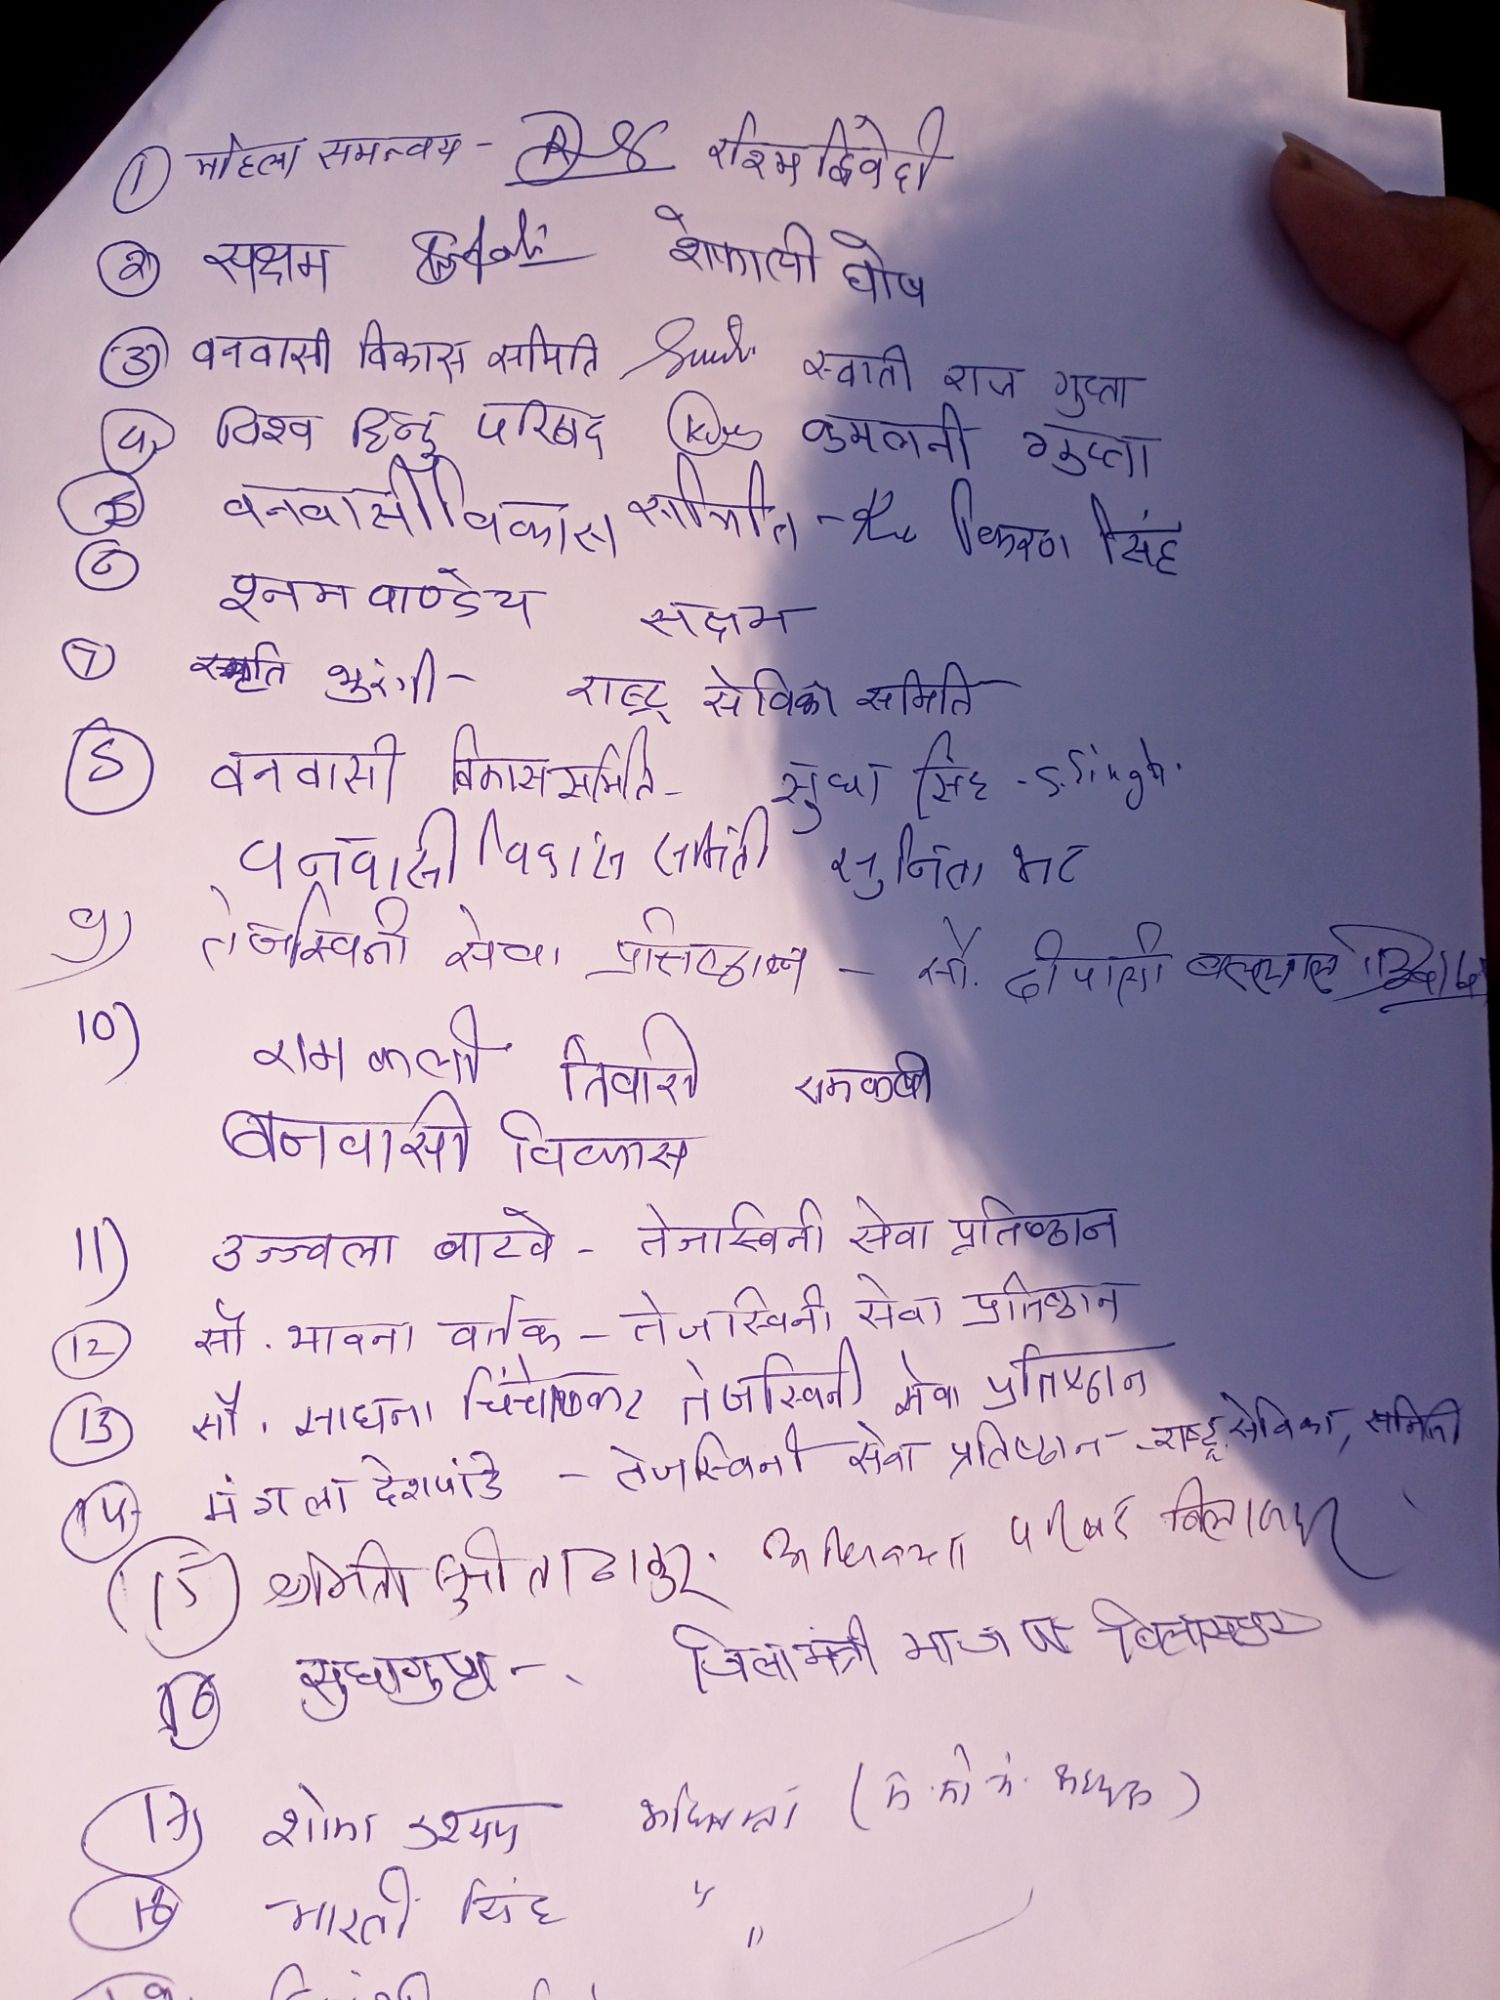 ① महिला समन्वय - रश्मि द्विवेदी
② सक्षम शेफाली घोष
③ वनवासी विकास समिति स्वाती राज गुप्ता
④ विश्व हिन्दु परिषद कुमलनी गुप्ता
⑤ वनवासी विकास समिति - किरण सिंह
⑥ पाण्डेय सक्षम
⑦ राष्ट्र सेविका समिति
⑧ वनवासी विकास समिति - सुधा सिंह - S.Singh.
वनवासी विकास समिती सुनिता भट
9) तेजस्विनी सेवा प्रतिष्ठान - सौ. दीपाली
10) राम कली तिवारी रामकली
बनवासी विकास
11) उज्ज्वला वाटवे - तेजास्विनी सेवा प्रतिष्ठान
⑫ सौ. भावना वर्तक - तेजास्विनी सेवा प्रतिष्ठान
⑬ सौ. साधना तेजस्विनी सेवा प्रतिष्ठान
⑭ मंगला देशपांडे - तेजस्विनी सेवा प्रतिष्ठान - राष्ट्र सेविका, समिती
⑮ श्रीमती ठाकुर. अधिवक्ता परिषद बिलासपुर
⑯ सुधा गुप्ता - जिलामंत्री भाजपा बिलासपुर
⑰ शोभा कश्यप
⑱ भारती सिंह " "